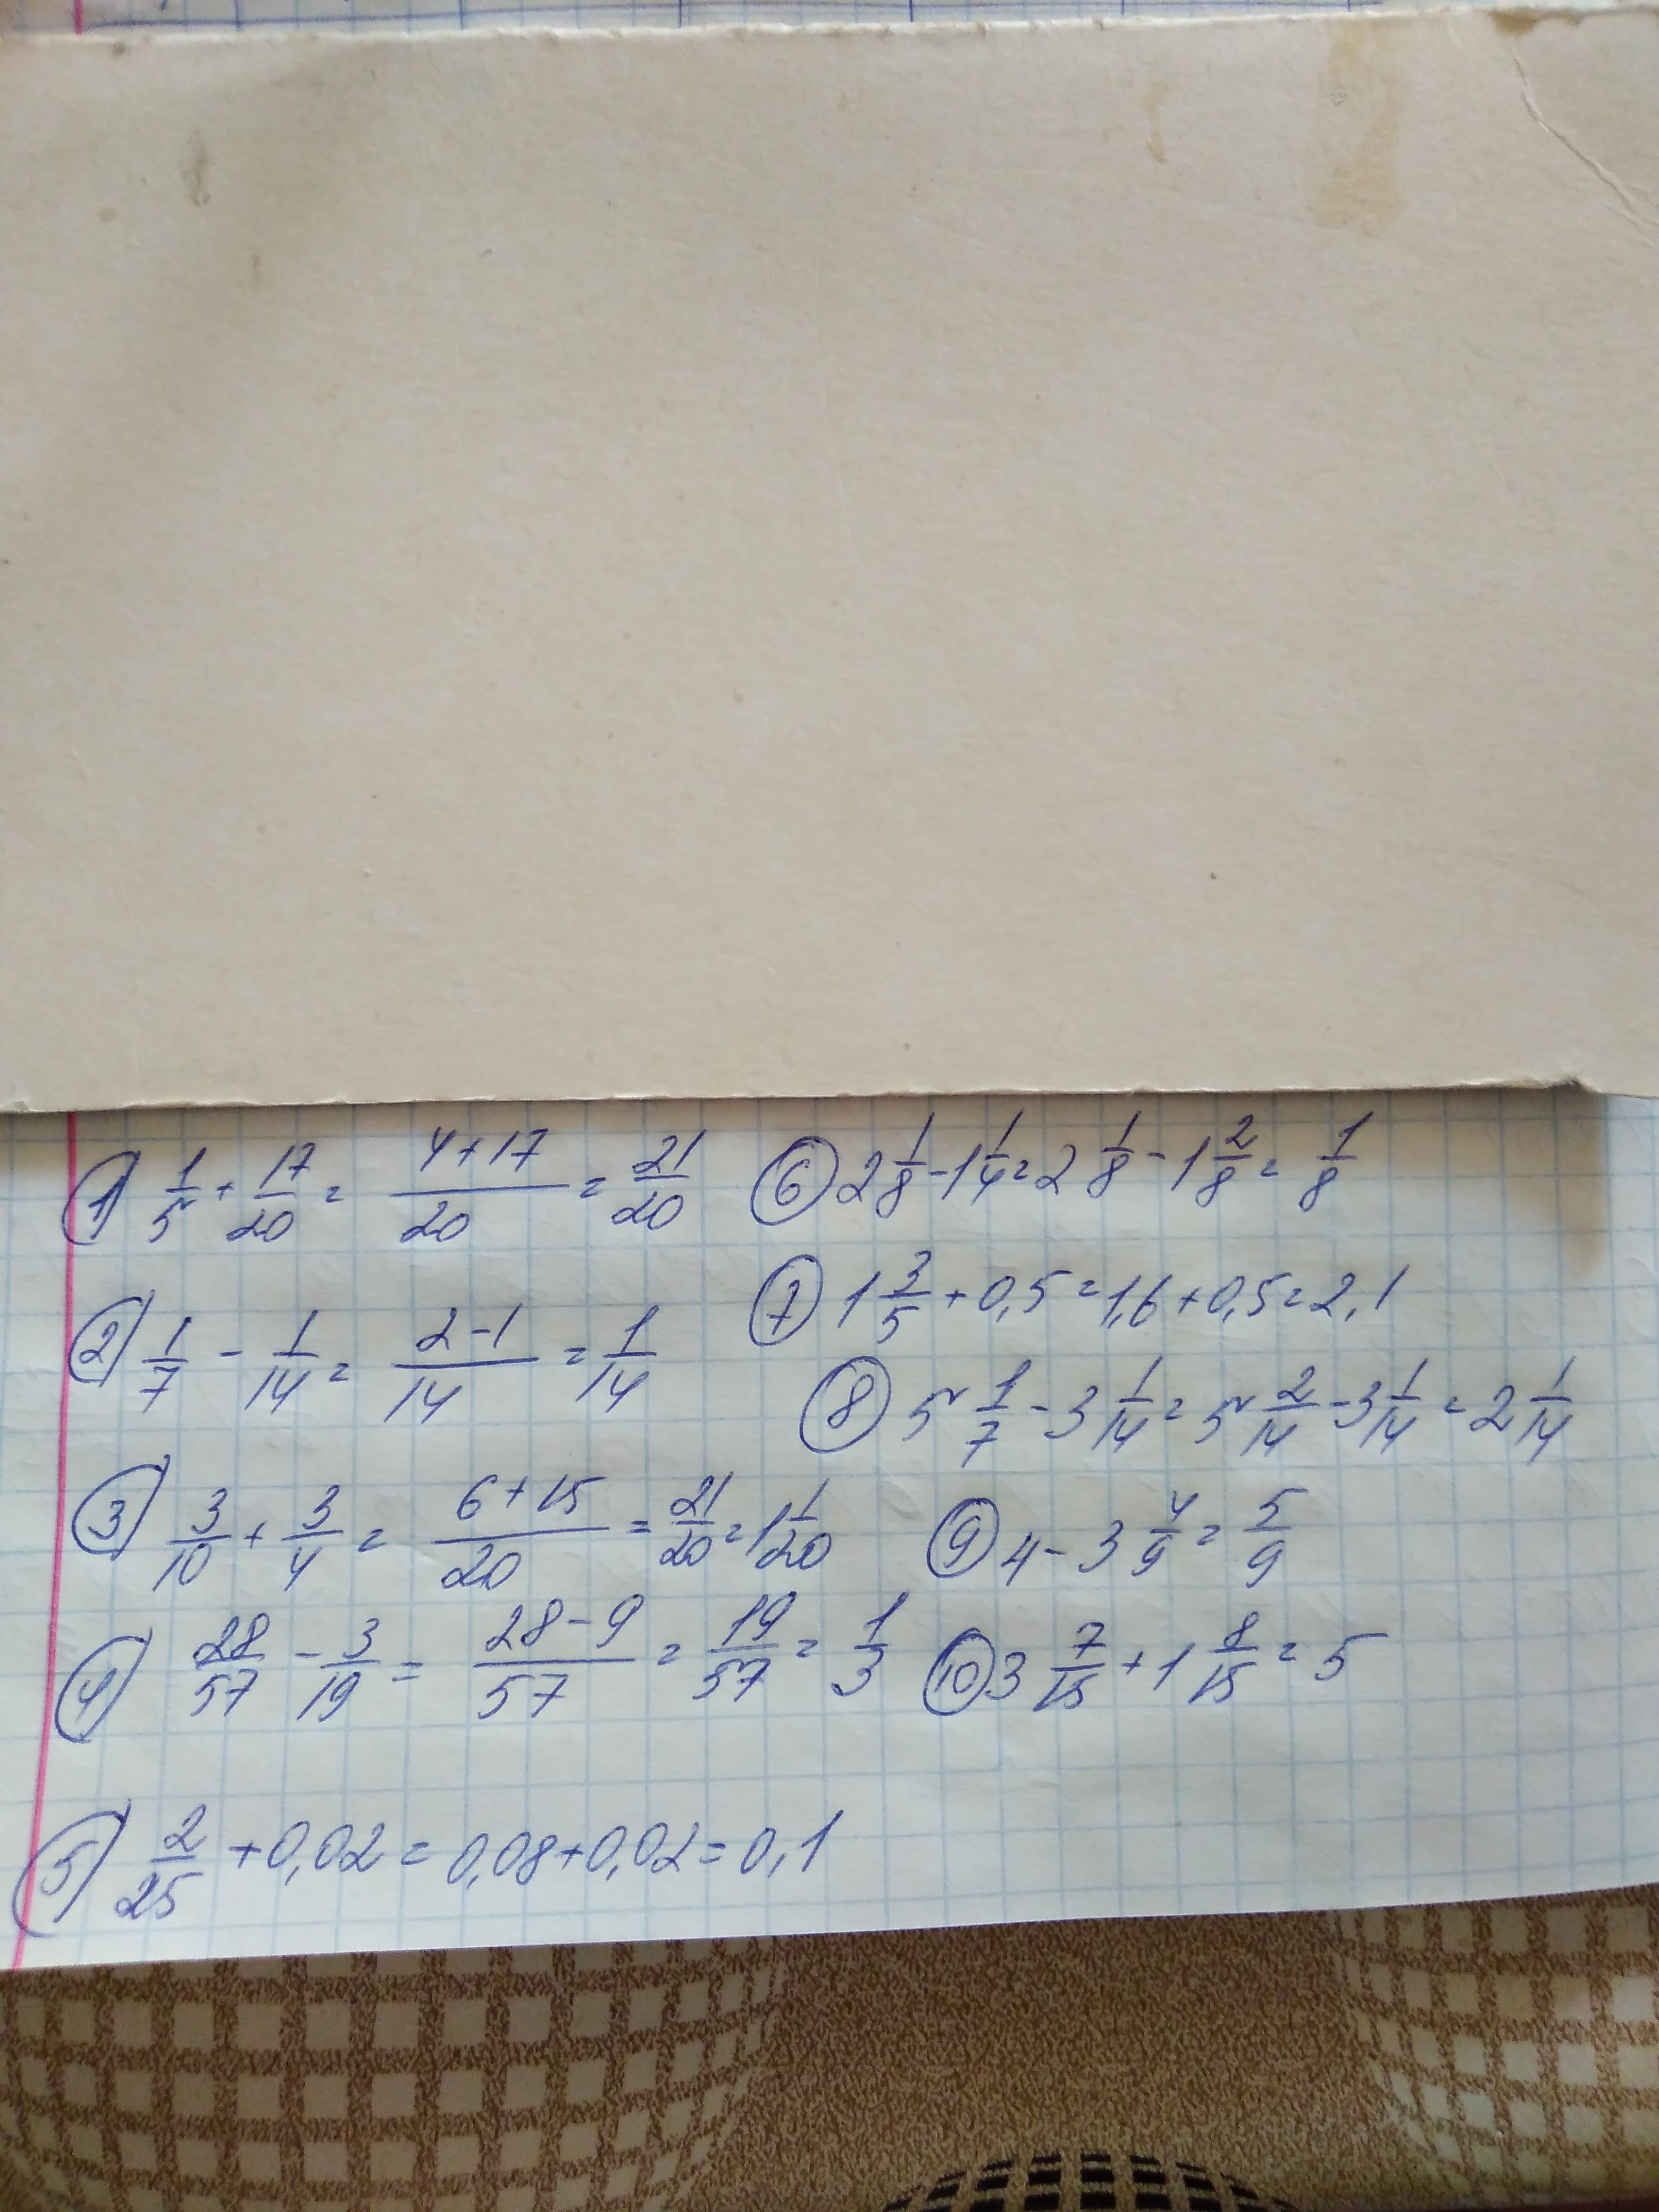 1) 1/5 + 17/20 = (4+17)/20 = 21/20
2) 1/7 - 1/14 = (2-1)/14 = 1/14
3) 3/10 + 3/4 = (6+15)/20 = 21/20 = 1 1/20
4) 28/57 - 3/19 = (28-9)/57 = 19/57 = 1/3
5) 2/25 + 0,02 = 0,08 + 0,02 = 0,1
6) 2 1/8 - 1 1/4 = 2 1/8 - 1 2/8 = 1/8
7) 1 3/5 + 0,5 = 1,6 + 0,5 = 2,1
8) 5 1/7 - 3 1/14 = 5 2/14 - 3 1/14 = 2 1/14
9) 4 - 3 4/9 = 5/9
10) 3 7/15 + 1 8/15 = 5